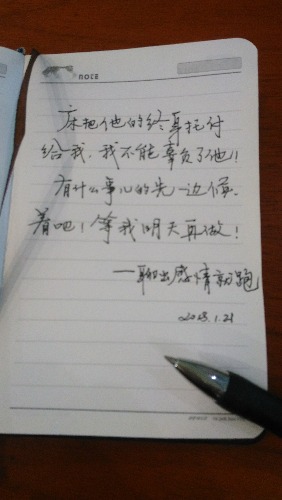 NOTE
床把他的终身托付
给我,我不能辜负了他!
有什么事儿的先一边候
着吧!等我明天再做!
一聊出感情就跑
2018.1.21